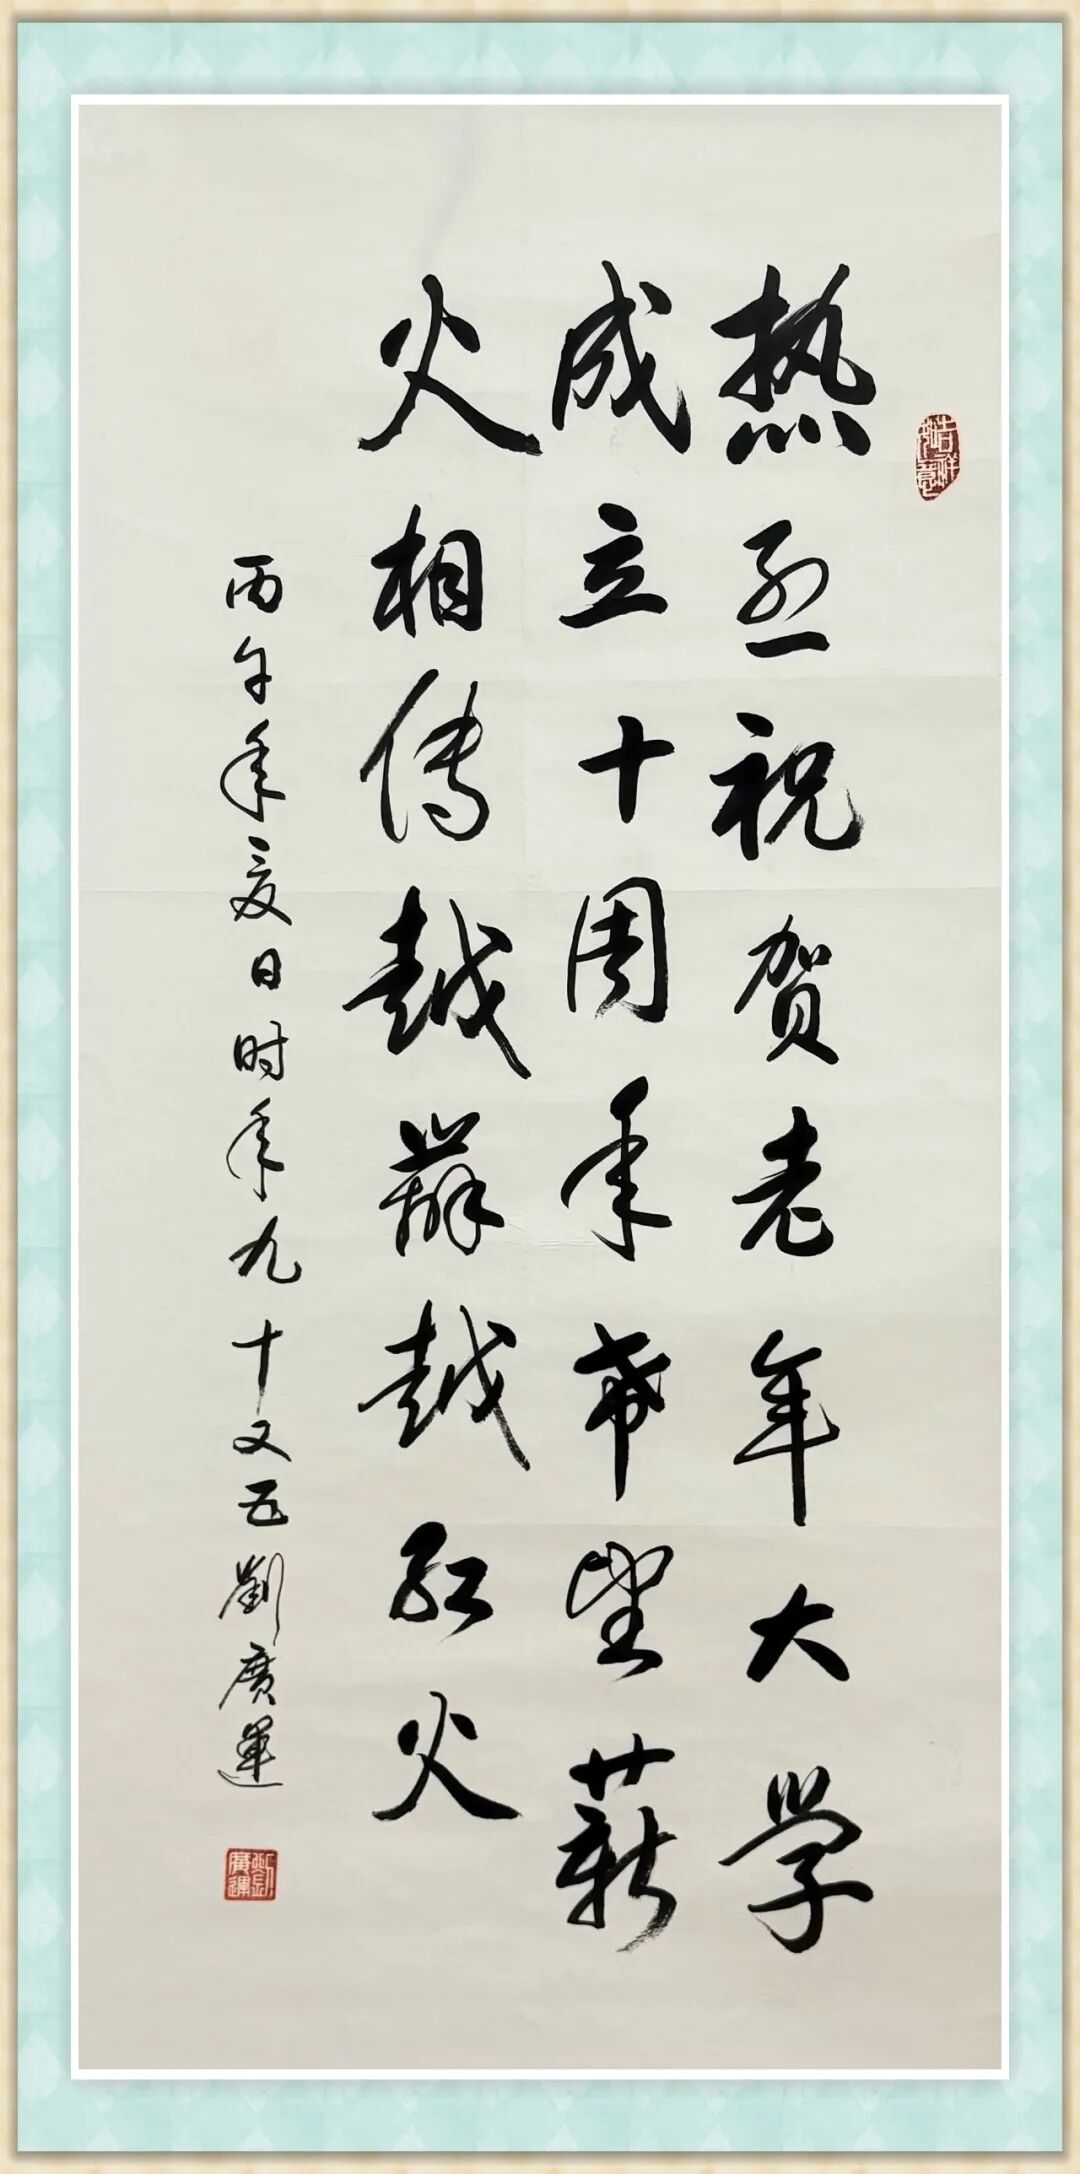 吉祥如意
热烈祝贺老年大学
成立十周年希望薪
火相传越辦越红火
丙午年夏日时年九十又五劉廣運
劉廣運